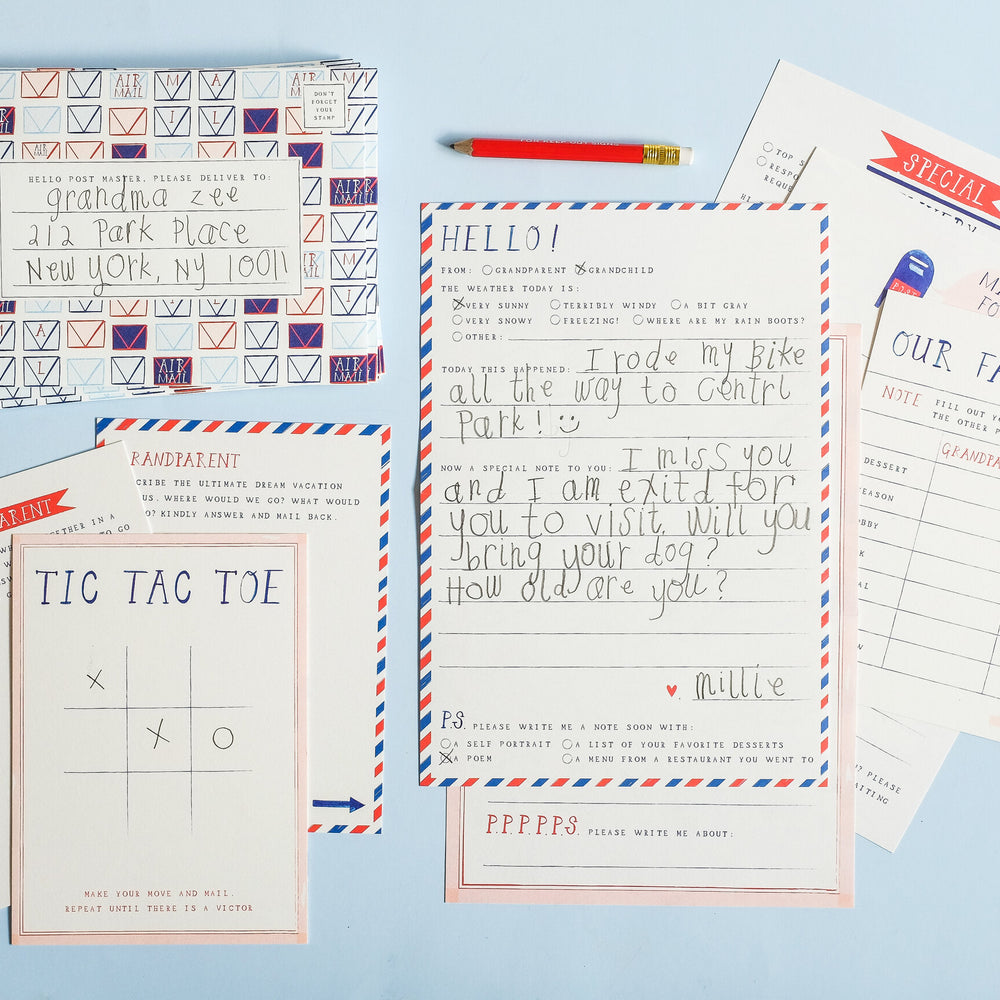 DON'T
FORGET
YOUR
STAMP
AIR MAIL
HELLO POST MASTER, PLEASE DELIVER TO:
grandma zee
212 Park Place
New York, NY 10011
HELLO!
FROM: GRANDPARENT GRANDCHILD
THE WEATHER TODAY IS:
VERY SUNNY TERRIBLY WINDY A BIT GRAY
VERY SNOWY FREEZING! WHERE ARE MY RAIN BOOTS?
OTHER:
TODAY THIS HAPPENED: I rode my Bike
all the way to Centrl
Park!
NOW A SPECIAL NOTE TO YOU: I miss you
and I am exitd for
you to visit. Will you
bring your dog?
How old are you?
millie
P.S. PLEASE WRITE ME A NOTE SOON WITH:
A SELF PORTRAIT A LIST OF YOUR FAVORITE DESSERTS
A POEM A MENU FROM A RESTAURANT YOU WENT TO
P.P.P.P.P.S. PLEASE WRITE ME ABOUT:
RANDPARENT
CRIBE THE ULTIMATE DREAM VACATION
US. WHERE WOULD WE GO? WHAT WOULD
O? KINDLY ANSWER AND MAIL BACK.
ARENT
TOGETHER IN A
TO GO
TIC TAC TOE
X
X O
MAKE YOUR MOVE AND MAIL.
REPEAT UNTIL THERE IS A VICTOR
TOP
RESPO
REQUE
SPECIAL
POST
MA
FO
OUR FA
NOTE FILL OUT YO
THE OTHER P
GRANDPA
DESSERT
EASON
BBY
? PLEASE
AITING